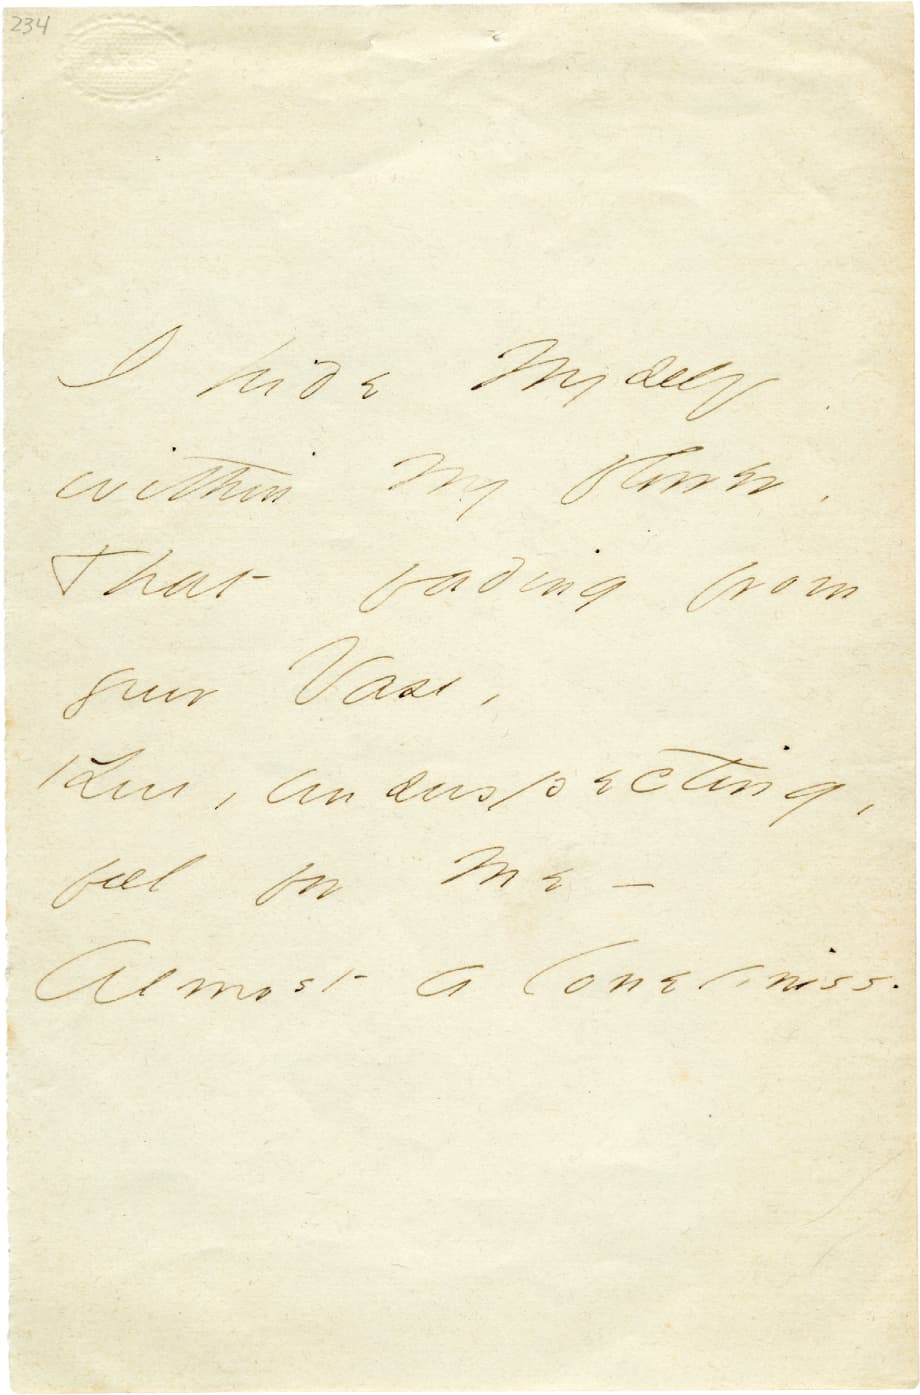 234
PARIS
I hide Myself
within my flower,
That fading from
your Vase,
You, unsuspecting,
feel for Me –
Almost a loneliness.